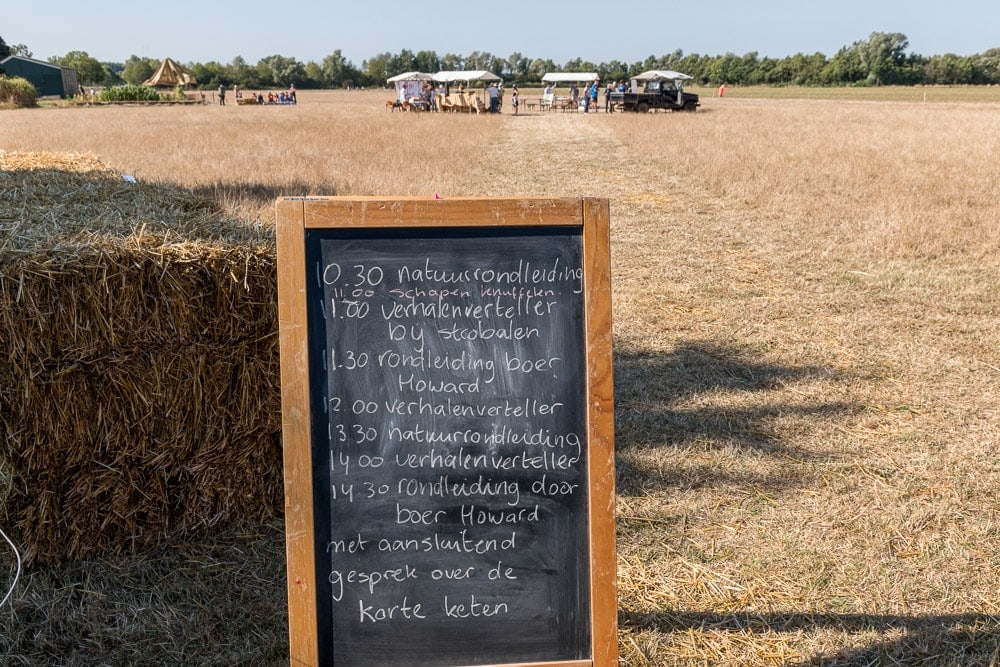 10.30 natuurrondleiding
11.00 schapen knuffelen
11.00 verhalenverteller
bij strobalen
11.30 rondleiding boer
Howard
12.00 verhalenverteller
13.30 natuurrondleiding
14.00 verhalenverteller
14.30 rondleiding door
boer Howard
met aansluitend
gesprek over de
korte keten